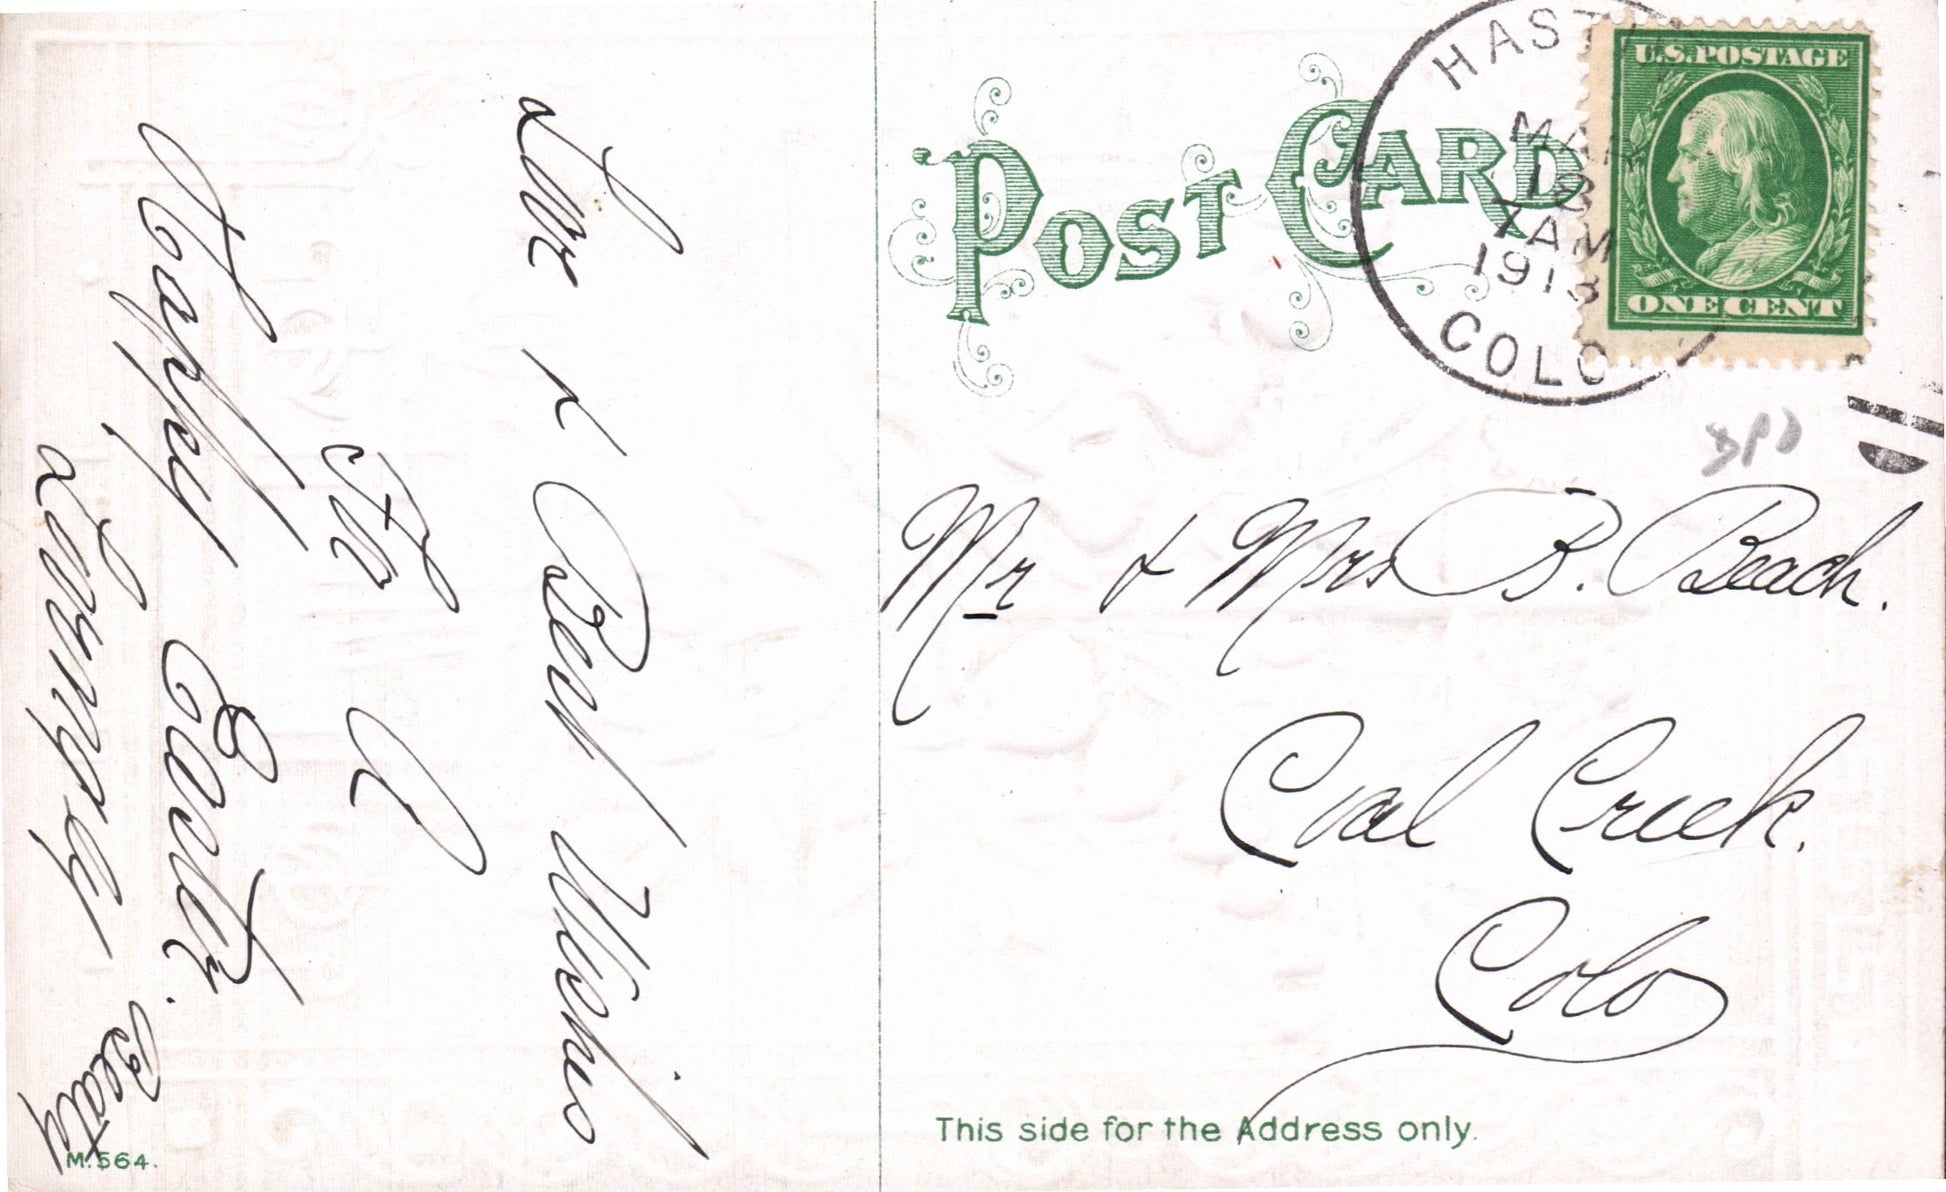 POST CARD
HAST
MAR
18
7 AM
1913
COLO
U.S. POSTAGE
ONE CENT
Mr & Mrs B. Beach.
Coal Creek.
Colo
This side for the Address only.
Love & Best Wishes
For A
Happy Easter.
Lovingly
M. 564.